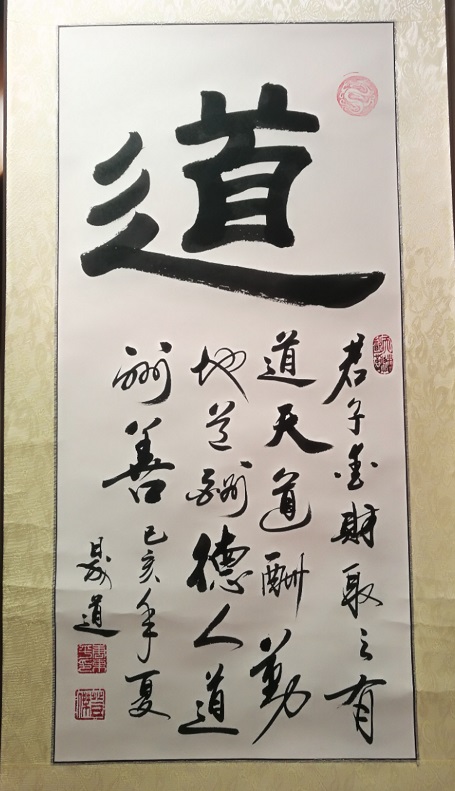 道
君子愛財取之有
道天道酬勤
地道酬德人道
酬善
己亥年夏
道